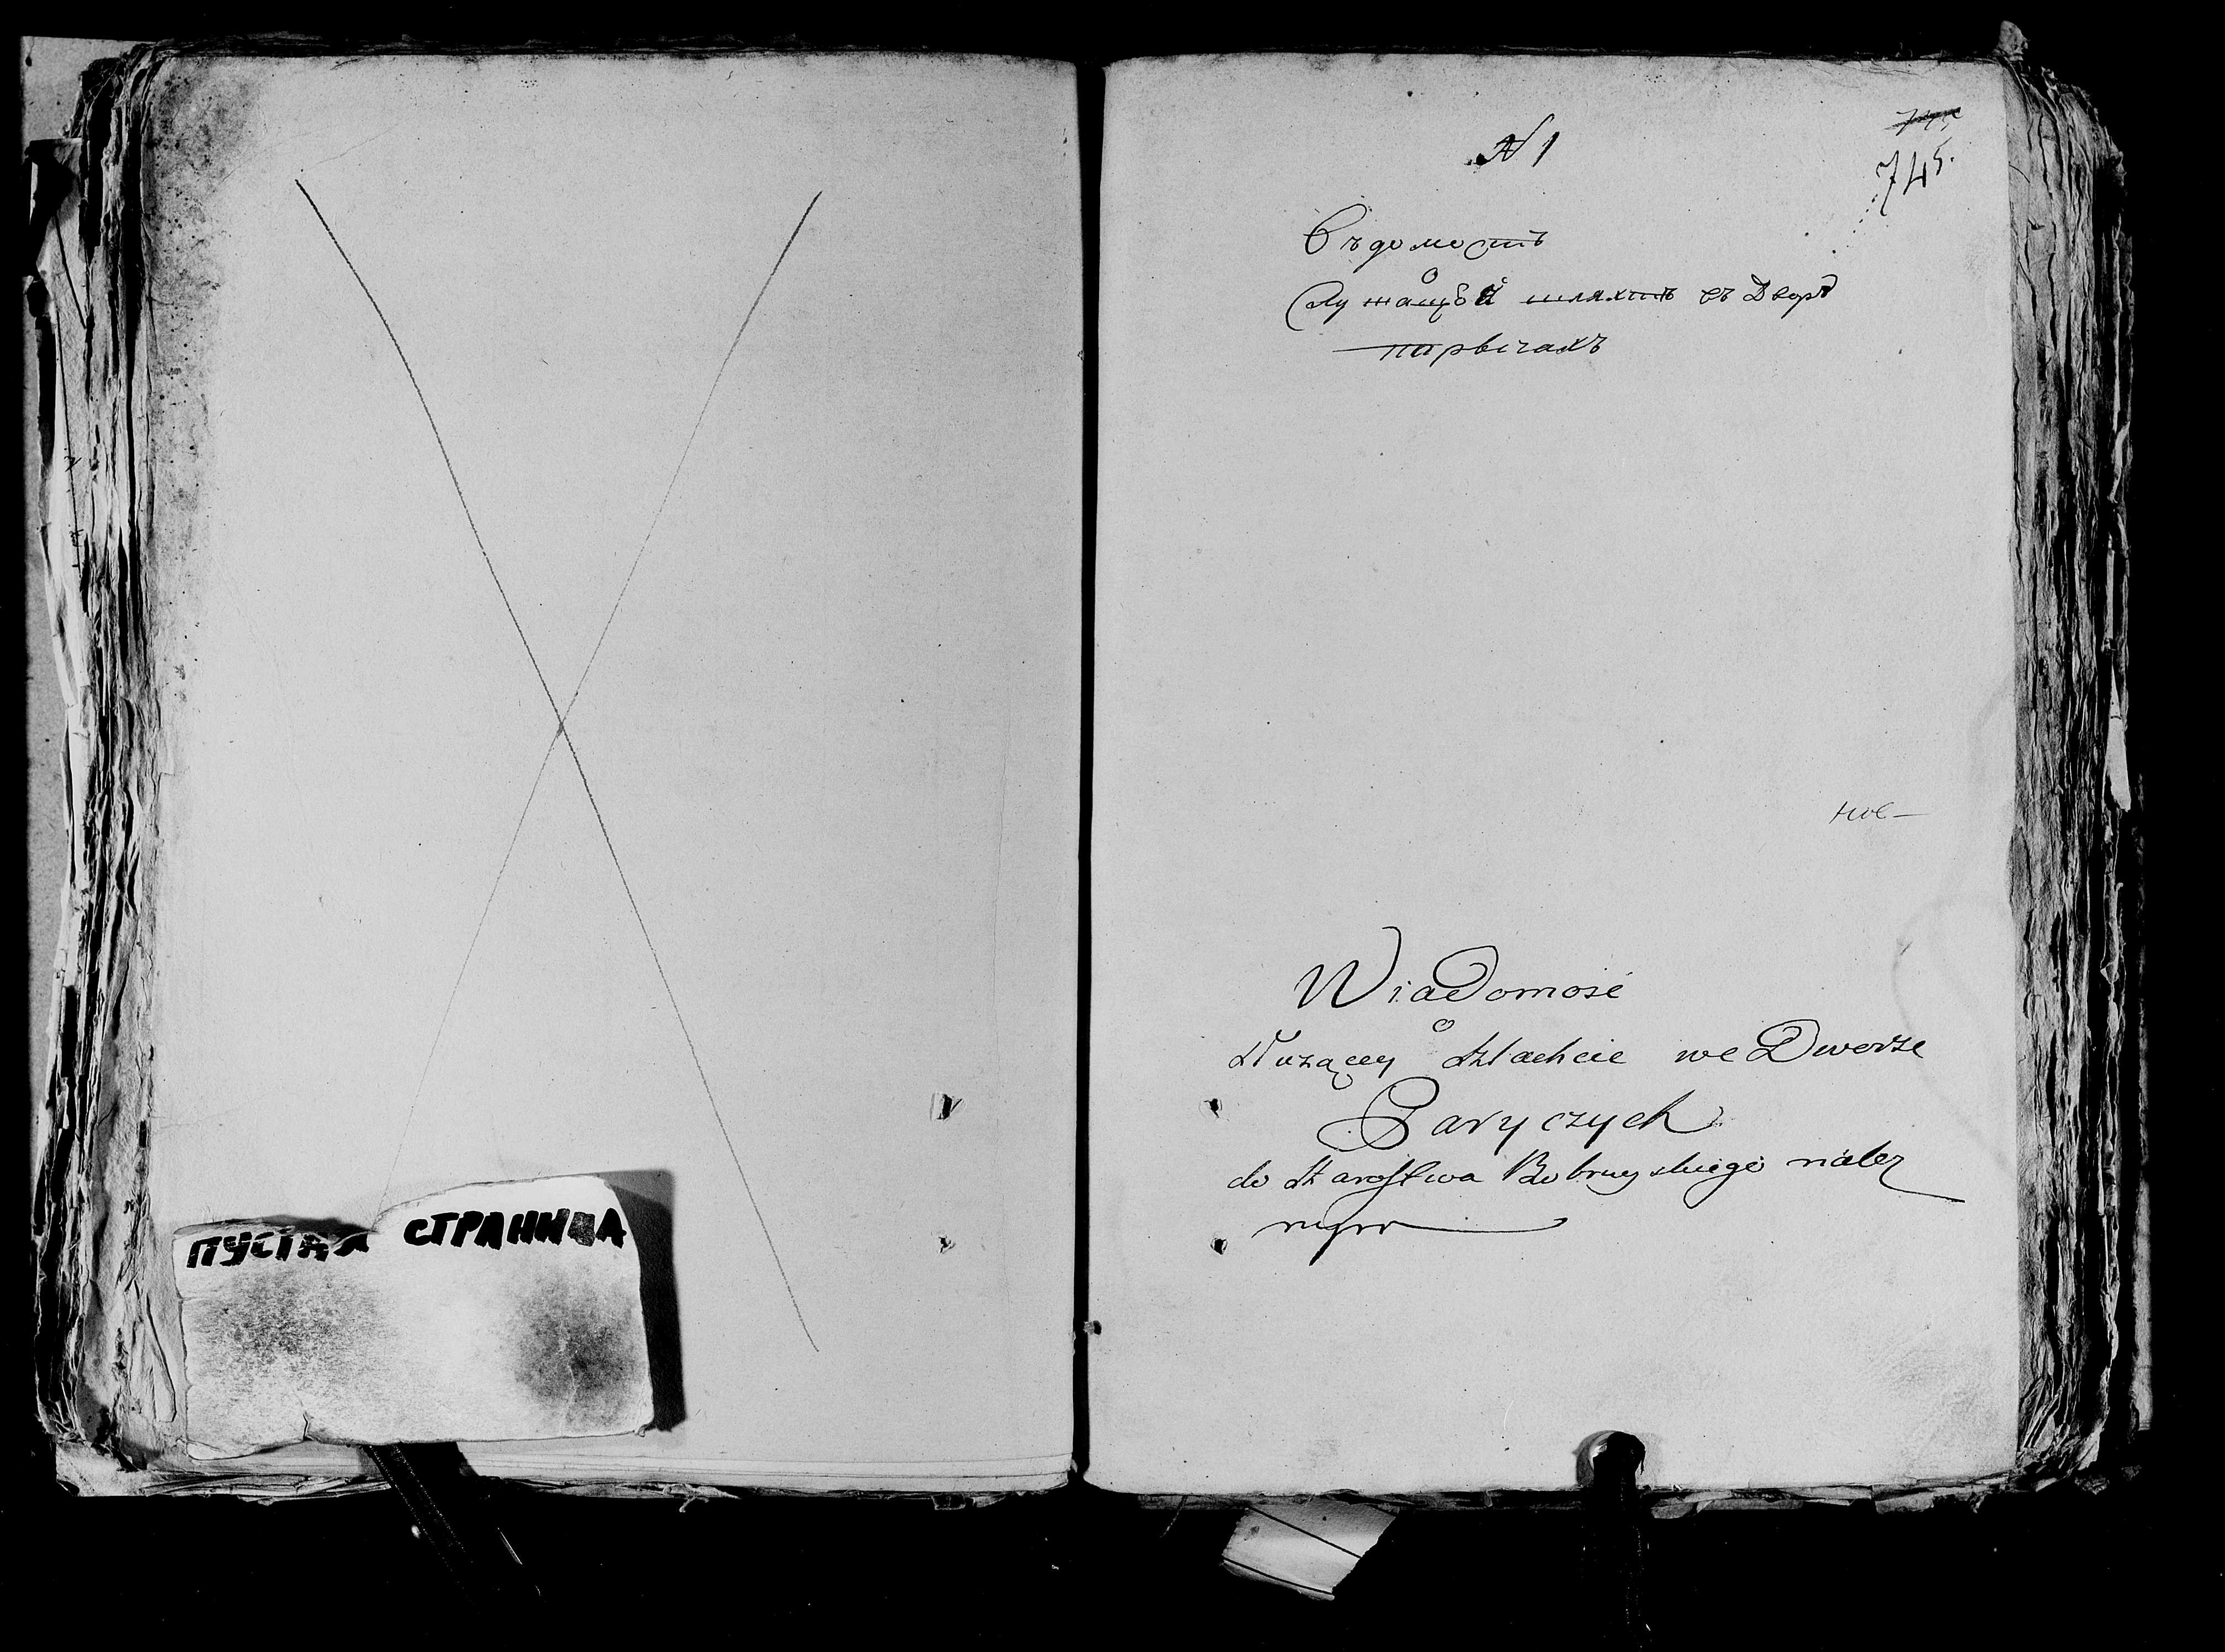 ПУСТАЯ СТРАНИЦА
N 1
745.
Вѣдомость
о
Служащой шляхтѣ въ Дворѣ
парычахъ
Wiadomość
o
służącey szlachcie we Dworze
Paryczych
do Starostwa Bobruyskiego należ
nym